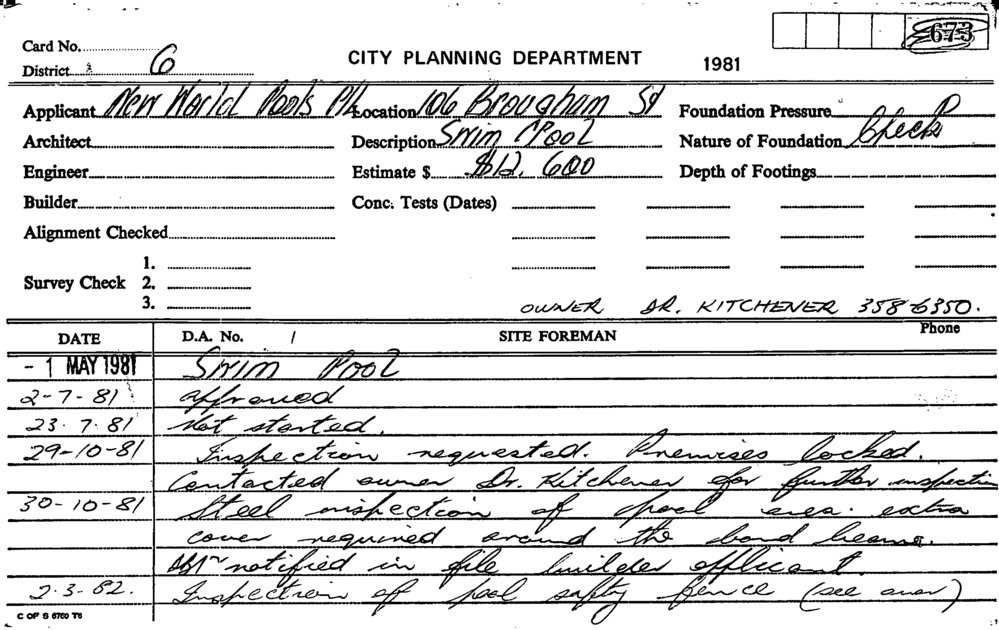 673
Card No.
District 6
CITY PLANNING DEPARTMENT 1981
Applicant New World Pools P/L Location 106 Brougham St Foundation Pressure
Architect Description Swim Pool Nature of Foundation Check
Engineer Estimate $ $12,600 Depth of Footings
Builder Conc. Tests (Dates)
Alignment Checked
1.
Survey Check 2.
3.
OWNER DR. KITCHENER 358-6350.
DATE D.A. No. / SITE FOREMAN Phone
- 1 MAY 1981 Swim Pool
2-7-81 approved
23.7.81 Not started.
29-10-81 Inspection requested. Premises locked.
Contacted owner Dr. Kitchener for further inspection
30-10-81 Steel inspection of pool area. extra
cover required around the bond beams.
notified in file builder applicant.
2.3.82. Inspection of pool safty fence (see over)
C OF S 6760 T6